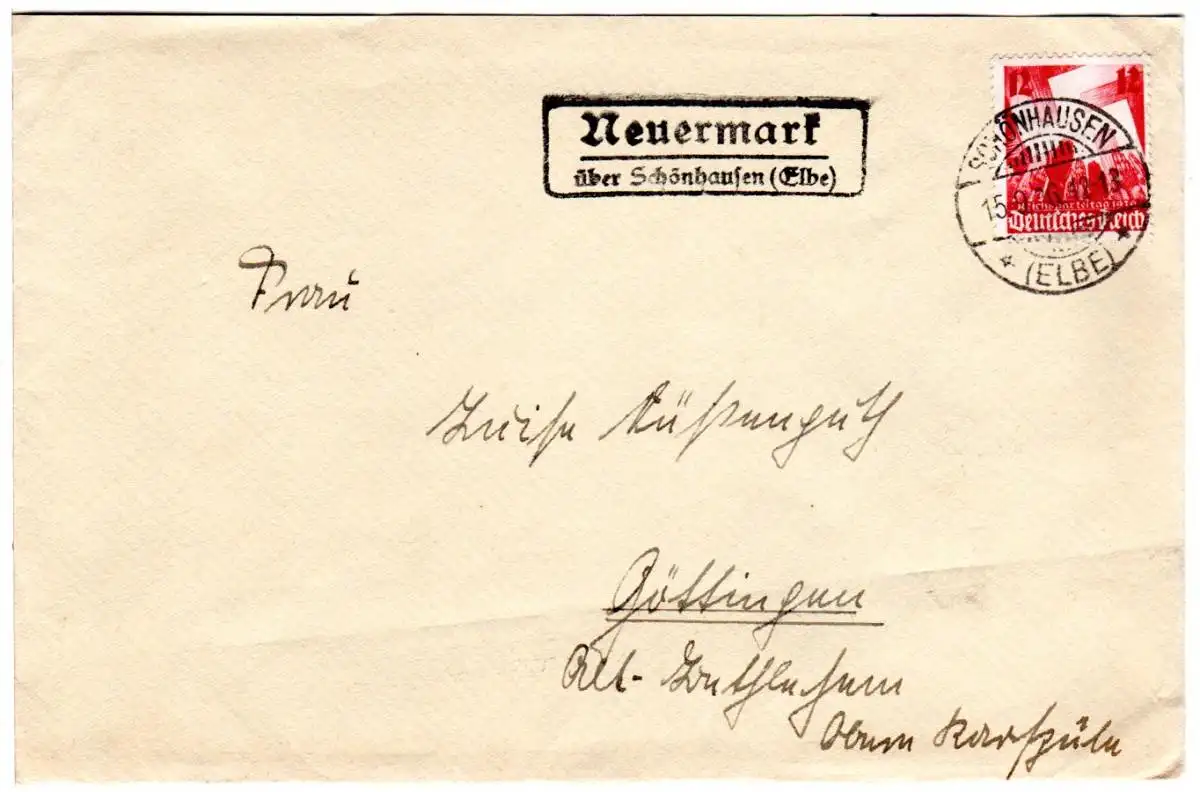 Neuermark
über Schönhausen (Elbe)
12 12
SCHÖNHAUSEN
15.9.36.12-13
Reichsparteitag 1936
Deutsches Reich
* (ELBE) *
Frau
Luise Süßenguth
Göttingen
Alt-Bethlehem
Obere Karspüle